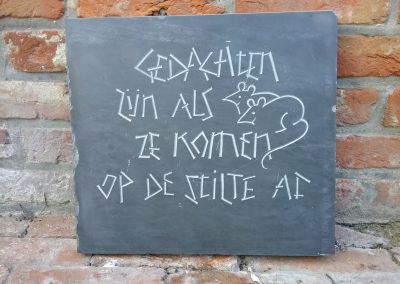 GEDACHTEN
ZIJN ALS
ZE KOMEN
OP DE STILTE AF